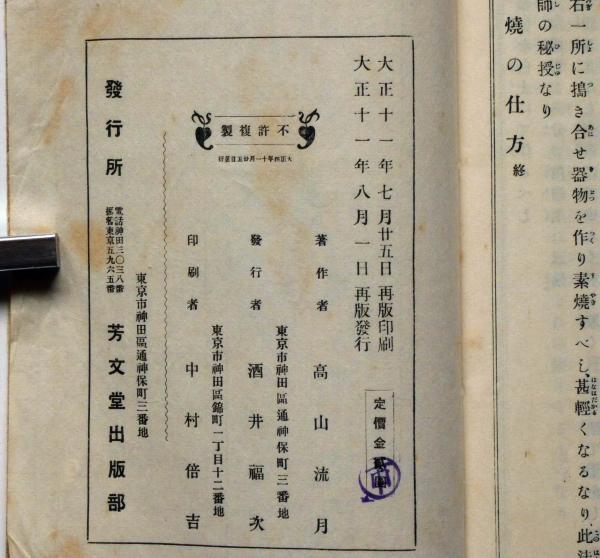 右一所に搗き合せ器物を作り素燒すべし、甚輕くなるなり此法
師の秘授なり
燒の仕方 終
大正十一年七月廿五日 再版印刷
大正十一年八月一日 再版發行
定價金
不許複製
大正四年十一月廿五日發行
著作者 高山流月
東京市神田區通神保町三番地
發行者 酒井福次
東京市神田區錦町一丁目十二番地
印刷者 中村倍吉
東京市神田區通神保町三番地
發行所 電話神田三〇三八番
振替東京五九六五番
芳文堂出版部